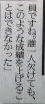 員ですね。誰一人欠けても、
このような成績を上げるこ
とはできなかった」